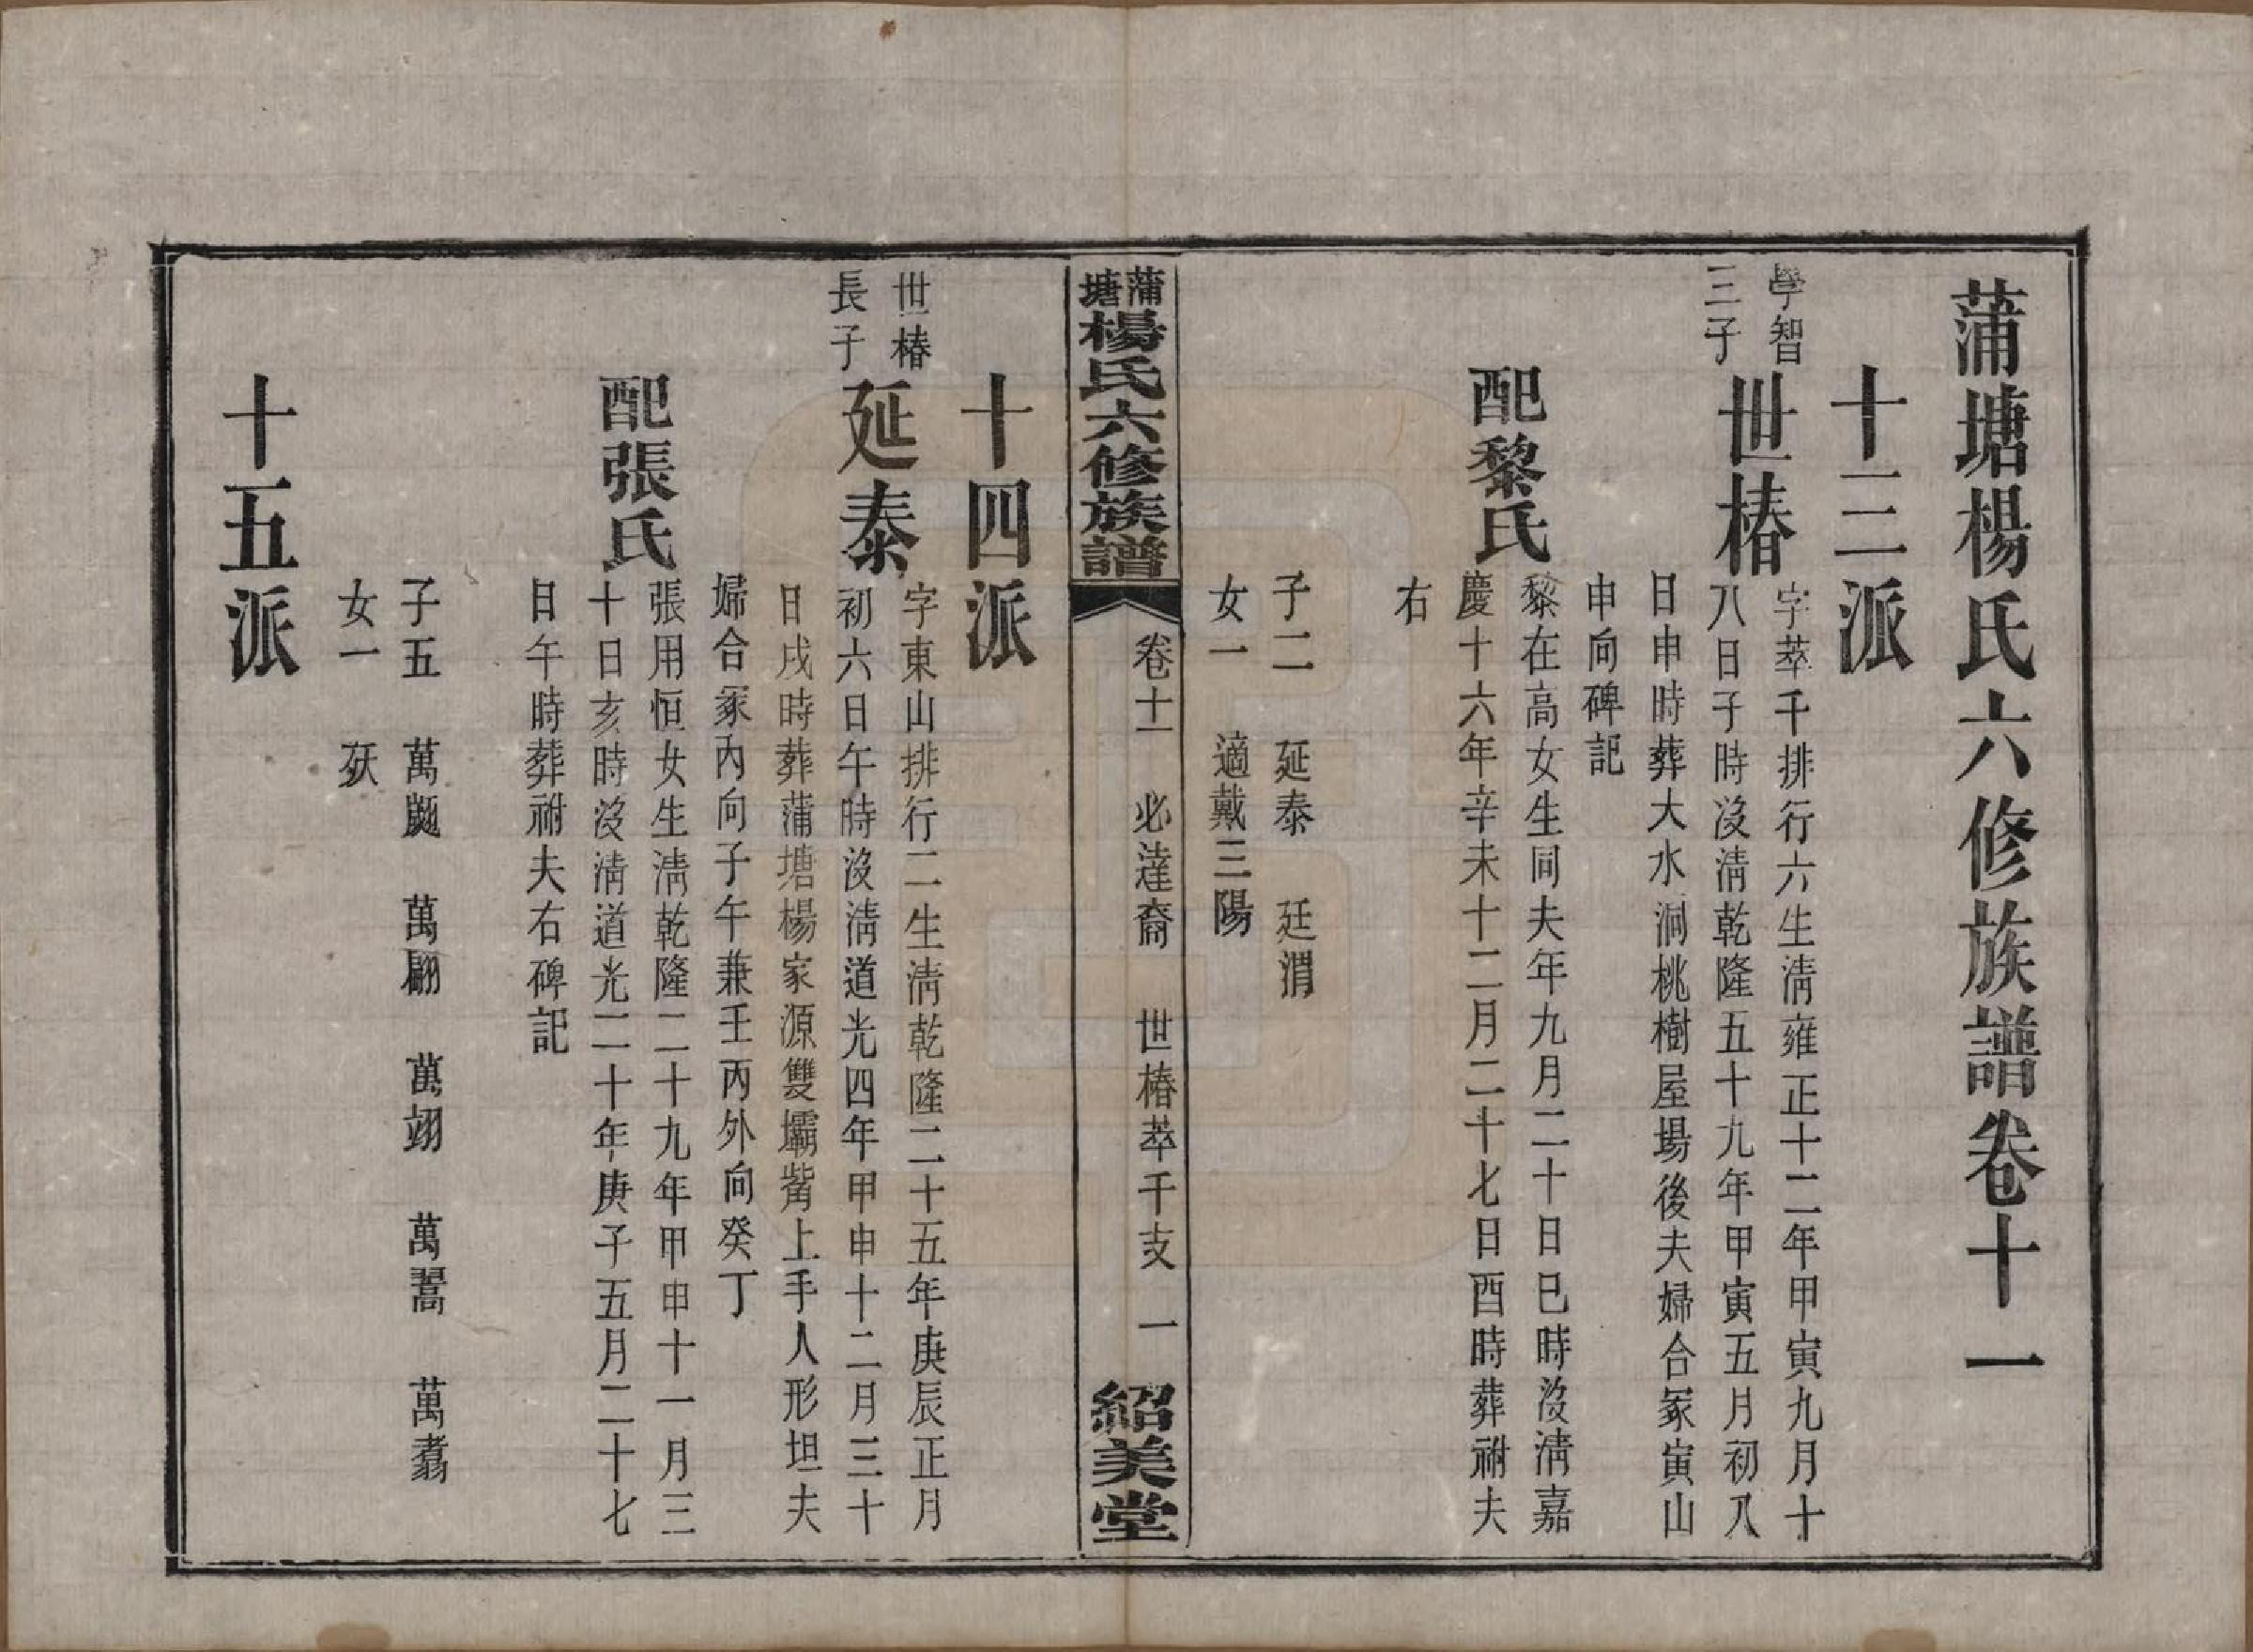 蒲塘楊氏六修族譜卷十一
十三派
學智
三子
世椿
字萃千排行六生淸雍正十二年甲寅九月十
八日子時沒淸乾隆五十九年甲寅五月初八
日申時葬大水洞桃樹屋場後夫婦合冢寅山
申向碑記
配黎氏
黎在高女生同夫年九月二十日巳時沒淸嘉
慶十六年辛未十二月二十七日酉時葬祔夫
右
子二 延泰 廷渭
女一 適戴三陽
蒲塘楊氏六修族譜 卷十一 必達裔 世椿萃千支 一 紹美堂
十四派
世椿
長子
延泰
字東山排行二生淸乾隆二十五年庚辰正月
初六日午時沒淸道光四年甲申十二月三十
日戌時葬蒲塘楊家源雙壩觜上手人形坦夫
婦合冢內向子午兼壬丙外向癸丁
配張氏
張用恒女生淸乾隆二十九年甲申十一月三
十日亥時沒淸道光二十年庚子五月二十七
日午時葬祔夫右碑記
子五 萬 萬翮 萬翊 萬翯 萬翥
女一 殀
十五派